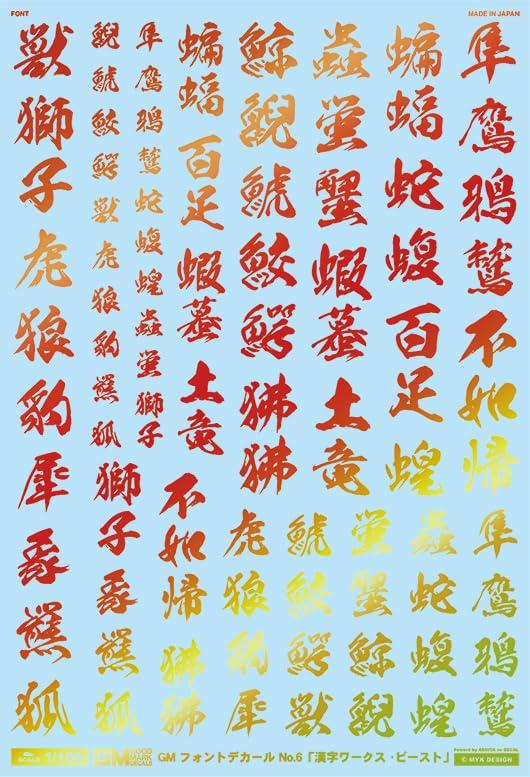 FONT
MADE IN JAPAN
隼鷹鴉鷲不如帰
蝙蝠蛇蝮百足蝗
蟲蛍蟹蝦蟇土竜
鯨鯢鯱鮫鰐狒狒
蝙蝠百足蝦蟇土竜
隼鷹鴉鷲蛇蝮蝗蟲蛍獅子
鯢鯱鮫鰐獣虎狼豹羆狐
獣獅子虎狼豹犀羆狐
隼鷹鴉鷲
蟲蛇蝮蝗
蛍蟹鯨鯢
鯱鮫鰐獣
虎狼豹犀
不如帰狒狒
獅子羆狐
GM フォントデカール No.6「漢字ワークス・ビースト」
© MYK DESIGN